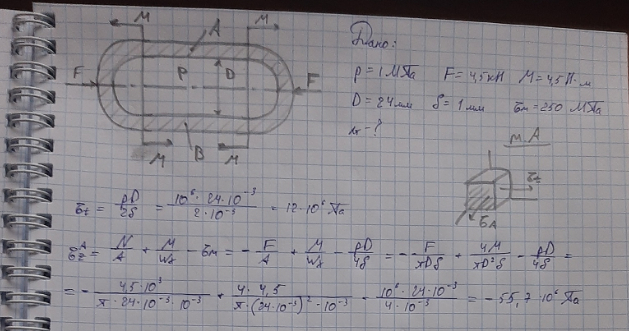 M M
A
Дано:
F P D F
p = 1 МПа F = 4,5 кН M = 4,5 Н·м
D = 24 мм δ = 1 мм σт = 250 МПа
B
M M
n - ?
т.A
σt
σt = pD/2δ = 10⁶·24·10⁻³/2·10⁻³ = 12·10⁶ Па
σz^A = N/A + M/Wx - σm = - F/A + M/Wx - pD/4δ = - F/πDδ + 4M/πD²δ - pD/4δ =
= - 4,5·10³/π·24·10⁻³·10⁻³ + 4·4,5/π·(24·10⁻³)²·10⁻³ - 10⁶·24·10⁻³/4·10⁻³ = -55,7·10⁶ Па